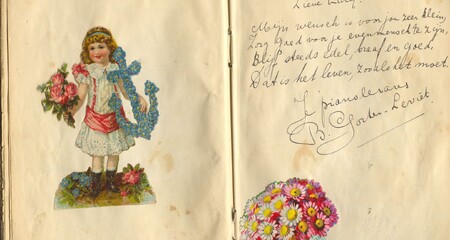 Lieve Lucy!
Mijn wensch is voor jou zeer klein,
Zorg goed voor je evenmensch te zijn,
Blijf steeds edel braaf en goed,
Dat is het leven, zooals het moet.
Je pianolerares
B.